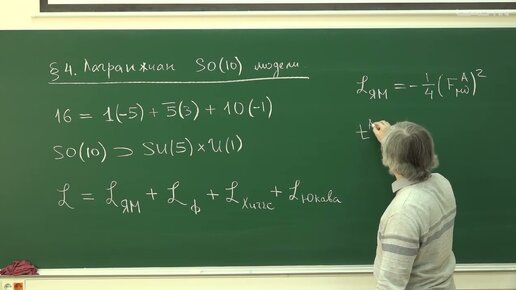 §4. Лагранжиан SO(10) модели
16 = 1(-5) + 5̅(3) + 10(-1)
SO(10) ⊃ SU(5) × U(1)
ℒ = ℒ_ЯМ + ℒ_ф + ℒ_Хиггс + ℒ_Юкава
ℒ_ЯМ = -1/4 (F_μν^A)²
t